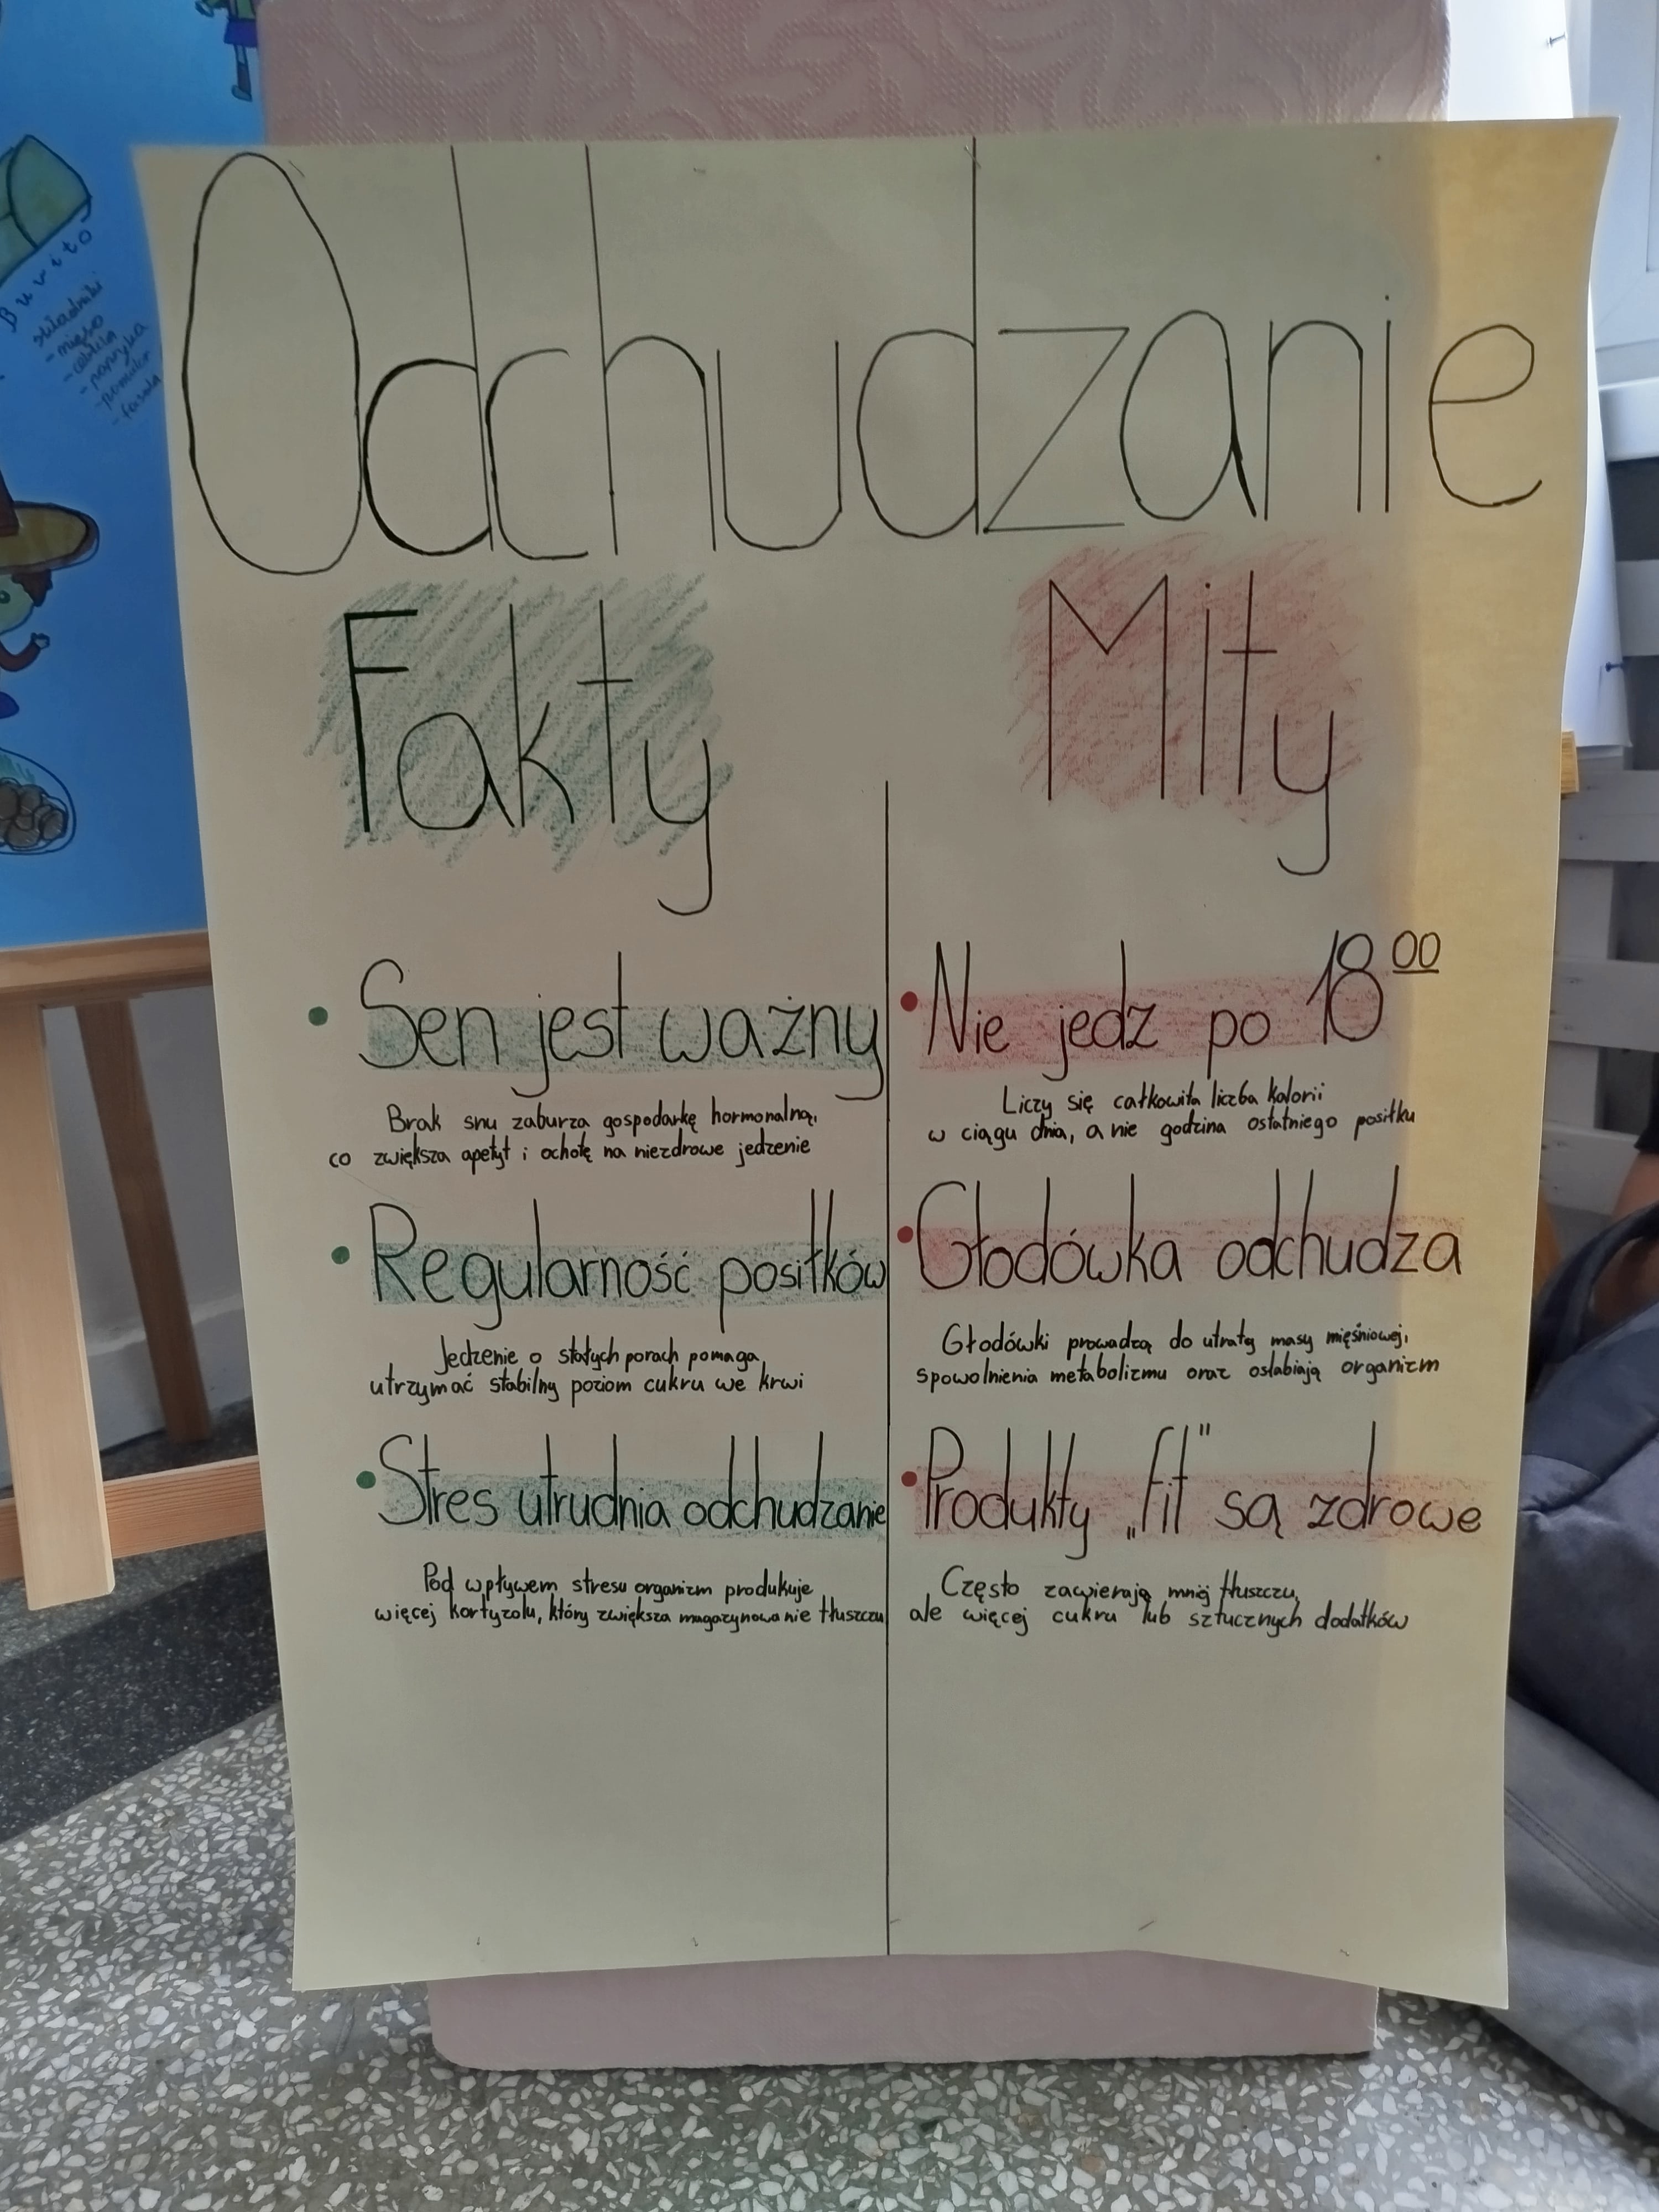 Odchudzanie
Fakty
Sen jest ważny
Brak snu zaburza gospodarkę hormonalną,
co zwiększa apetyt i ochotę na niezdrowe jedzenie
Regularność posiłków
Jedzenie o stałych porach pomaga
utrzymać stabilny poziom cukru we krwi
Stres utrudnia odchudzanie
Pod wpływem stresu organizm produkuje
więcej kortyzolu, który zwiększa magazynowanie tłuszczu
Mity
Nie jedz po 18 00
Liczy się całkowita liczba kalorii
w ciągu dnia, a nie godzina ostatniego posiłku
Głodówka odchudza
Głodówki prowadzą do utraty masy mięśniowej,
spowolnienia metabolizmu oraz osłabiają organizm
Produkty „fit" są zdrowe
Często zawierają mniej tłuszczu,
ale więcej cukru lub sztucznych dodatków
Burito
składniki
- mięso
- cebula
- papryka
- fasola